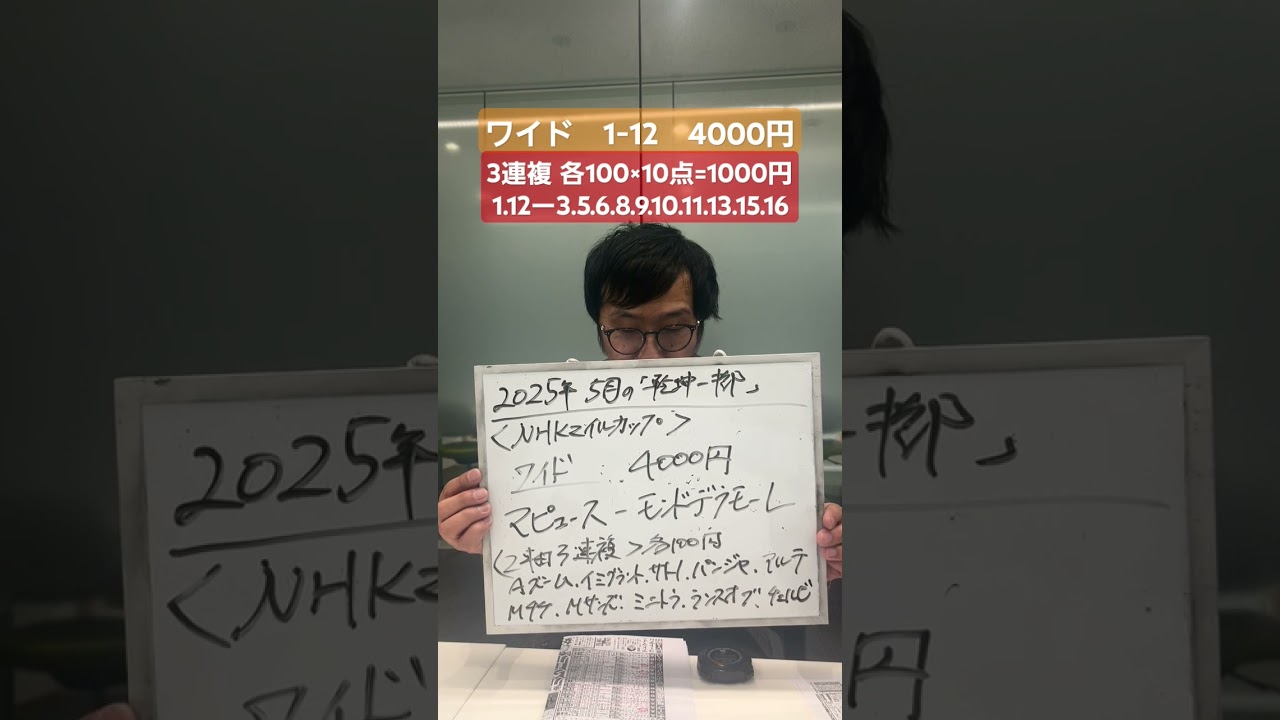 ワイド 1-12 4000円
3連複 各100×10点=1000円
1.12ー3.5.6.8.9.10.11.13.15.16
2025年 5月の「乾坤一擲」
<NHKマイルカップ>
ワイド 4000円
マピュース-モンドデラモーレ
<2軸3連複>各100円
Aズーム.イミグラント.サトノ.パンジャ.アルテ
Mタケ.Mサンズ.ミニトラ.ランスオブ.チェルビ